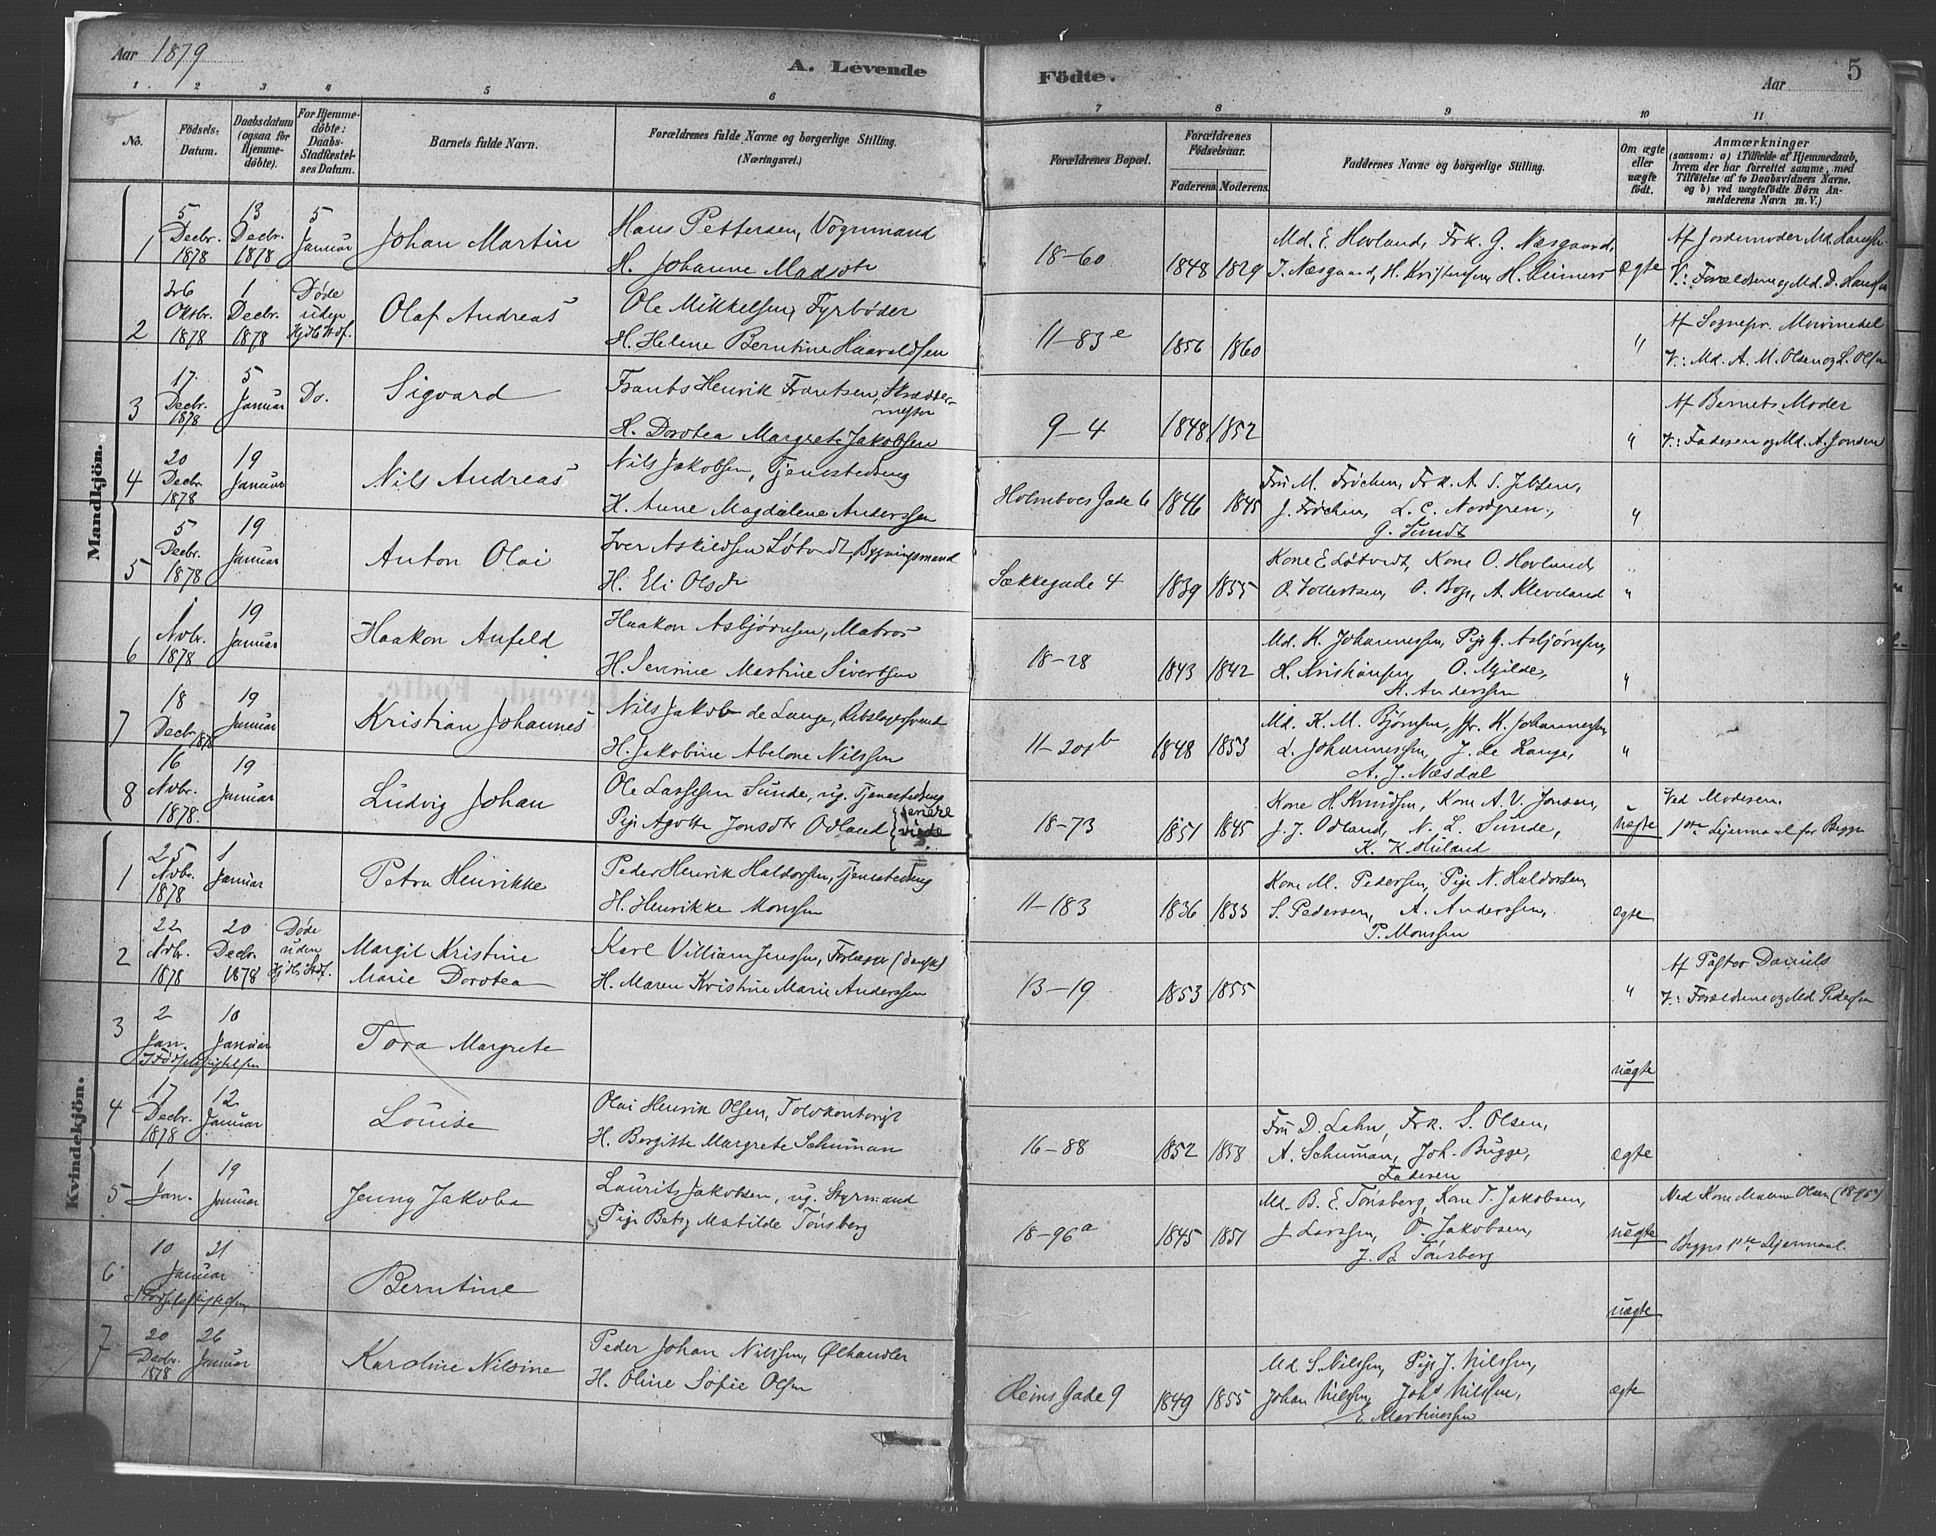 Aar 1879
A. Levende Födte.
Aar
5
1. 2 3 4 5 6 7 8 9 10 11
No.
Födsels-Datum.
Daabsdatum (ogsaa for Hjemmedöbte).
For Hjemmedöbte: Daabs-Stadfæstelses Datum.
Barnets fulde Navn.
Forældrenes fulde Navne og borgerlige Stilling.
(Næringsvei.)
Forældrenes Bopæl.
Forældrenes Födselsaar.
Faderens Moderens.
Faddernes Navne og borgerlige Stilling.
Om ægte eller uægte födt.
Anmærkninger
(saasom: a) i Tilfælde af Hjemmedaab, hvem der har forrettet samme, med Tilföielse af to Daabsvidners Navne, og b) ved uægtefödte Börn Anmelderens Navn m. V.)
Mandkjön.
1
5 Decbr. 1878
13 Decbr. 1878
5 Januar
Johan Martin
Hans Pettersen, Vognmand
H. Johanne Madsdtr
18-60
1848 1829
Md. E. Hovland, Frk. G. Næsgaard,
J. Næsgaard, H. Kristensen, H. Reimers
ægte
Af Jordemoder Md. Hansen
V: Forældrene og Md. D. Hansen
2
26 Oktbr. 1878
1 Decbr. 1878
Døde uden Hjdb. Stdf.
Olaf Andreas
Ole Mikkelsen, Fyrbøder
H. Helene Berntine Haavaldsen
11-83e
1856 1860
"
Af Sognepr.
V: Md. A. M. Olsen og L. Olsen
3
17 Decbr. 1878
5 Januar
Do.
Sigvard
Frants Henrik Frantsen, Skræddermester
H. Dorotea Margrete Jakobsen
9-4
1848 1852
"
Af Barnets Moder
V: Faderen og Md. A. Jonsen
4
20 Decbr. 1878
19 Januar
Nils Andreas
Nils Jakobsen, Tjenestedreng
H. Anne Magdalene Anderssen
Holmboes Gade 6
1846 1845
Fru M. Frøchen, Frk. A. S. Jebsen,
J. Frøchen, L. C. Nordgren,
G. Sundt
"
5
5 Decbr. 1878
19 Januar
Anton Olai
Iver Askildsen Løtvedt, Bygningsmand
H. Eli Olsdr
Sækkegade 4
1839 1855
Kone E Løtvedt, Kone O. Hovland,
O. Vollertsen, O. Boge, A. Klevdand
"
6
1 Nvbr. 1878
19 Januar
Haakon Anfeld
Haakon Asbjørnsen, Matros
H. Severine Martine Sivertsen
18-28
1843 1842
Md. K. Johannessen, Pige G. Asbjørnsen,
H. Kristiansen, O. Mjelde,
K. Anderssen
"
7
18 Decbr. 1878
19 Januar
Kristian Johannes
Nils Jakob de Lange, Rebslagersvend
H. Jakobine Abelone Nilssen
11-201b
1848 1853
Md. K. M. Bjørnsen, Fr. K. Johannessen
L. Johannessen, J. de Lange,
A. J. Næsdal
"
8
16 Nvbr. 1878.
19 Januar
Ludvig Johan
Ole Larssen Sunde, ug. Tjenestedreng
Pige Agotte Jonsdtr Odland
18-73
1851 1845
Kone H. Knudsen, Kone A. V. Jonsen,
J. J. Odland, N. L. Sunde,
uægte
Ved Moderen.
1ste Lejermaal for Begge
Kvindekjön.
1
25 Nvbr. 1878
1 Januar
Petra Henrikke
Peder Henrik Haldorsen, Tjenestedreng
H. Henrikke Monsen
11-183
1836 1835
Kone M. Pedersen, Pige N. Haldorsen,
S. Pedersen, A. Anderssen,
P. Monssen
ægte
2
22 Nvbr. 1878
20 Decbr. 1878
Døde uden Hjdb. Stdf.
Margit Kristine Marie Dorotea
Karl Villiam Jenssen, Forlægger (dansk)
H. Maren Kristine Marie Anderssen
13-19
1853 1855
"
Af Pastor Daniels
V: Forældrene og Md. Pedersen
3
2 Jan.
10 Januar
I Fødselsstiftelsen
Tora Margrete
uægte
4
17 Decbr. 1878
12 Januar
Louise
Olai Henrik Olsen, Toldkontorist
H. Bergitte Margrete Schuman
16-88
1852 1858
Fru D. Lahn, Frk. S. Olsen,
A. Schuman, Joh. Bugge,
Faderen
ægte
5
1 Jan.
19 Januar
Jenny Jakoba
Laurits Jakobsen, ug. Styrmand
Pige Betsy Matilde Tønsberg
18-96a
1845 1851
Md. B. E. Tønsberg, Kone T. Jakobsen,
J Larssen, O. Jakobsen,
J. B. Tønsberg
uægte
Ved Kone Malene Olsen (18-96a)
Begges 1ste Lejermaal.
6
10 Januar
21
I Fødselsstiftelsen
Berntine
uægte
7
20 Decbr. 1878
26 Januar
Karoline Nilsine
Peder Johan Nilssen, Ølhandler
H. Oline Sofie Olsen
Heins Gade 9
1849 1855
Md S. Nilssen, Pige J. Nilssen,
Johan Nilssen, Johs Nilssen,
E. Martinessen
ægte